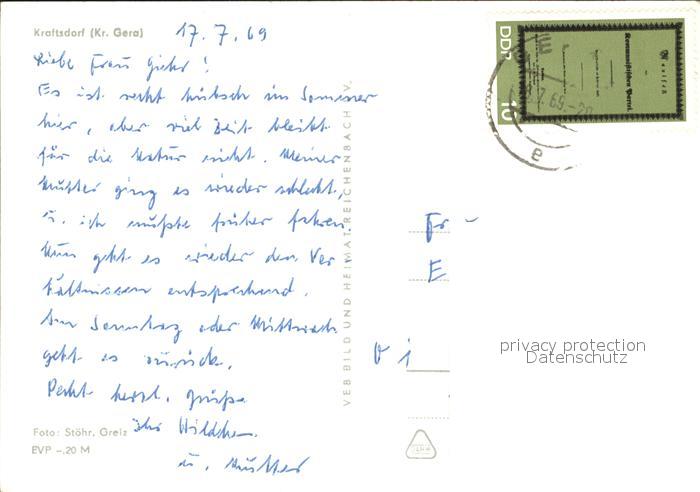 Kraftsdorf (Kr. Gera)
17.7.69
Liebe Frau
Es ist recht hübsch im Sommer
hier, aber viel Zeit bleibt
für die Natur nicht. Meiner
Mutter ging es wieder schlecht,
u. ich mußte früher fahren.
Nun geht es wieder den Ver
hältnissen entsprechend.
Am Sonntag oder Mittwoch
geht es zurück.
Recht herzl. Grüße
Ihr
u. Mutter
Foto: Stöhr, Greiz
EVP -.20 M
VEB BILD UND HEIMAT REICHENBACH I. V.
DDR
10
Manifest
Kommunistischen Partei.
a
Fr
E
privacy protection
Datenschutz